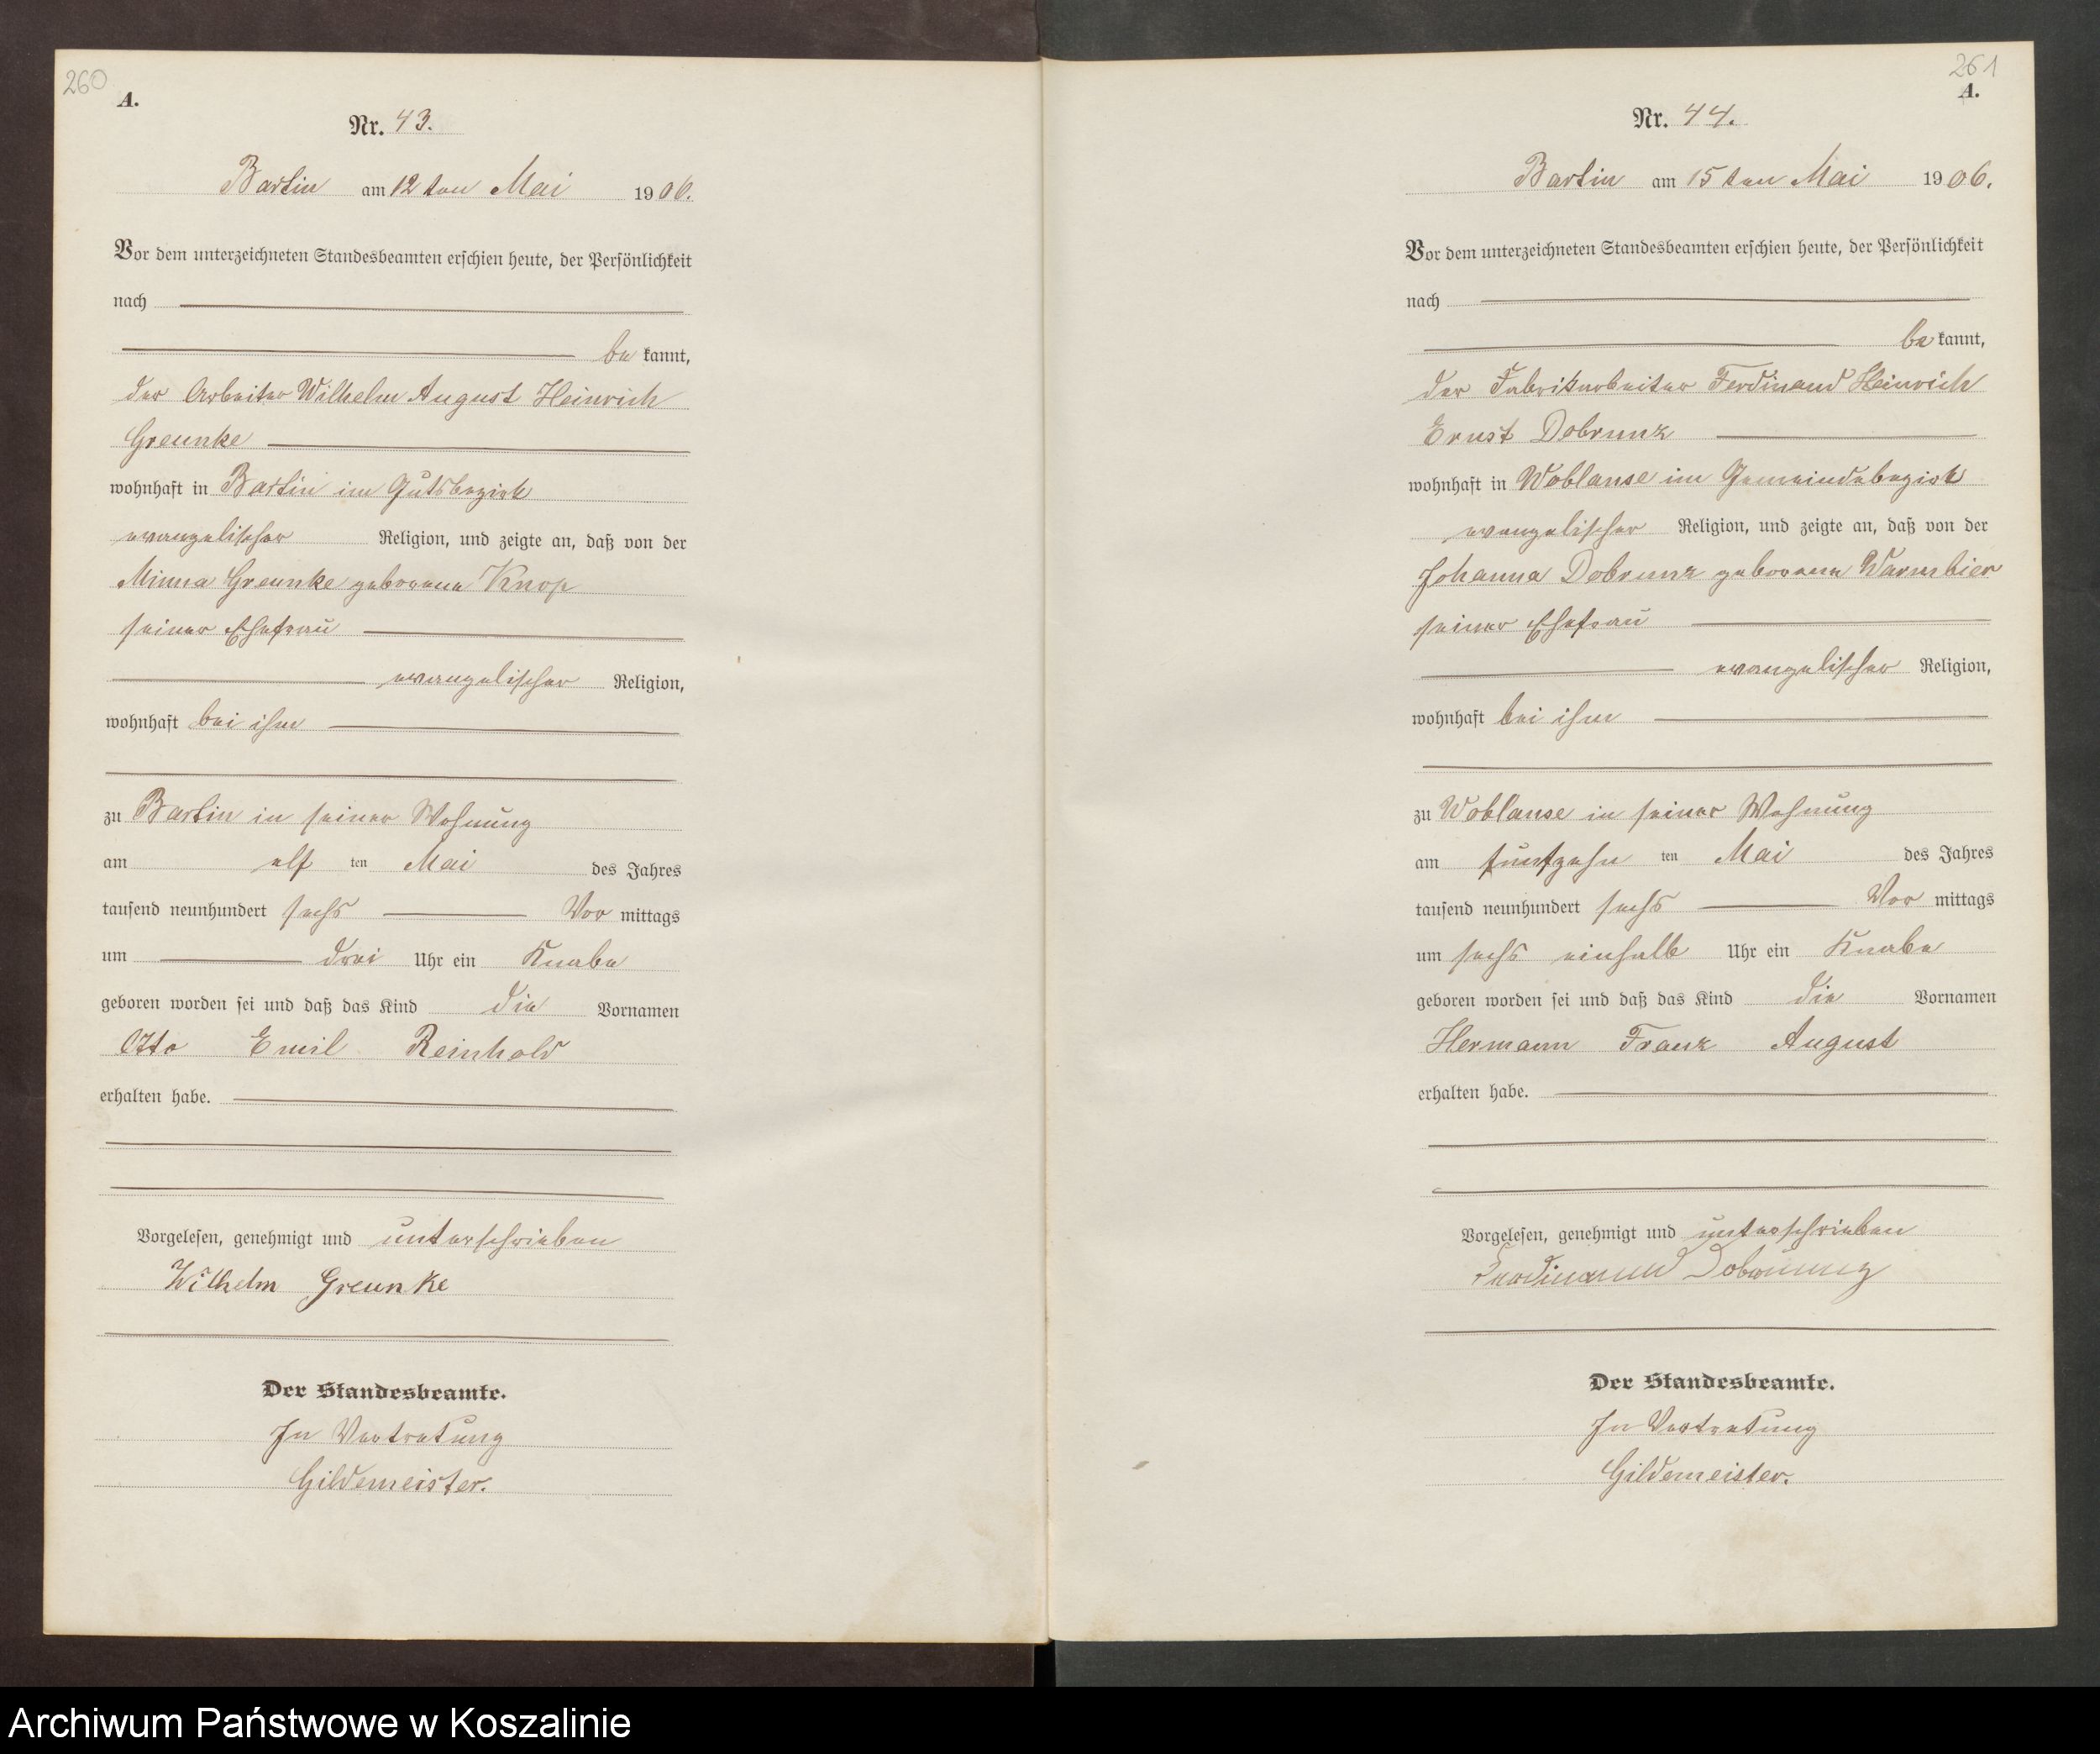 260
A.
Nr. 43.
Bartin am 12 ten Mai 1906.
Vor dem unterzeichneten Standesbeamten erschien heute, der Persönlichkeit
nach
be kannt,
der Arbeiter Wilhelm August Heinrich
Greunke
wohnhaft in Bartin im Gutsbezirk
evangelischer Religion, und zeigte an, daß von der
Minna Greunke geborene Knop
seiner Ehefrau
evangelischer Religion,
wohnhaft bei ihm
zu Bartin in seiner Wohnung
am elf ten Mai des Jahres
tausend neunhundert sechs Vor mittags
um drei Uhr ein Knabe
geboren worden sei und daß das Kind die Vornamen
Otto Emil Reinhold
erhalten habe.
Vorgelesen, genehmigt und unterschrieben
Wilhelm Greunke
Der Standesbeamte.
In Vertretung
Gildemeister.
261
A.
Nr. 44.
Bartin am 15 ten Mai 1906.
Vor dem unterzeichneten Standesbeamten erschien heute, der Persönlichkeit
nach
be kannt,
der Fabrikarbeiter Ferdinand Heinrich
Ernst Dobrunz
wohnhaft in Woblanse im Gemeindebezirk
evangelischer Religion, und zeigte an, daß von der
Johanna Dobrunz geborene Warmbier
seiner Ehefrau
evangelischer Religion,
wohnhaft bei ihm
zu Woblanse in seiner Wohnung
am fünfzehn ten Mai des Jahres
tausend neunhundert sechs Vor mittags
um sechs einhalb Uhr ein Knabe
geboren worden sei und daß das Kind die Vornamen
Hermann Franz August
erhalten habe.
Vorgelesen, genehmigt und unterschrieben
Ferdinand Dobrunz
Der Standesbeamte.
In Vertretung
Gildemeister.
Archiwum Państwowe w Koszalinie